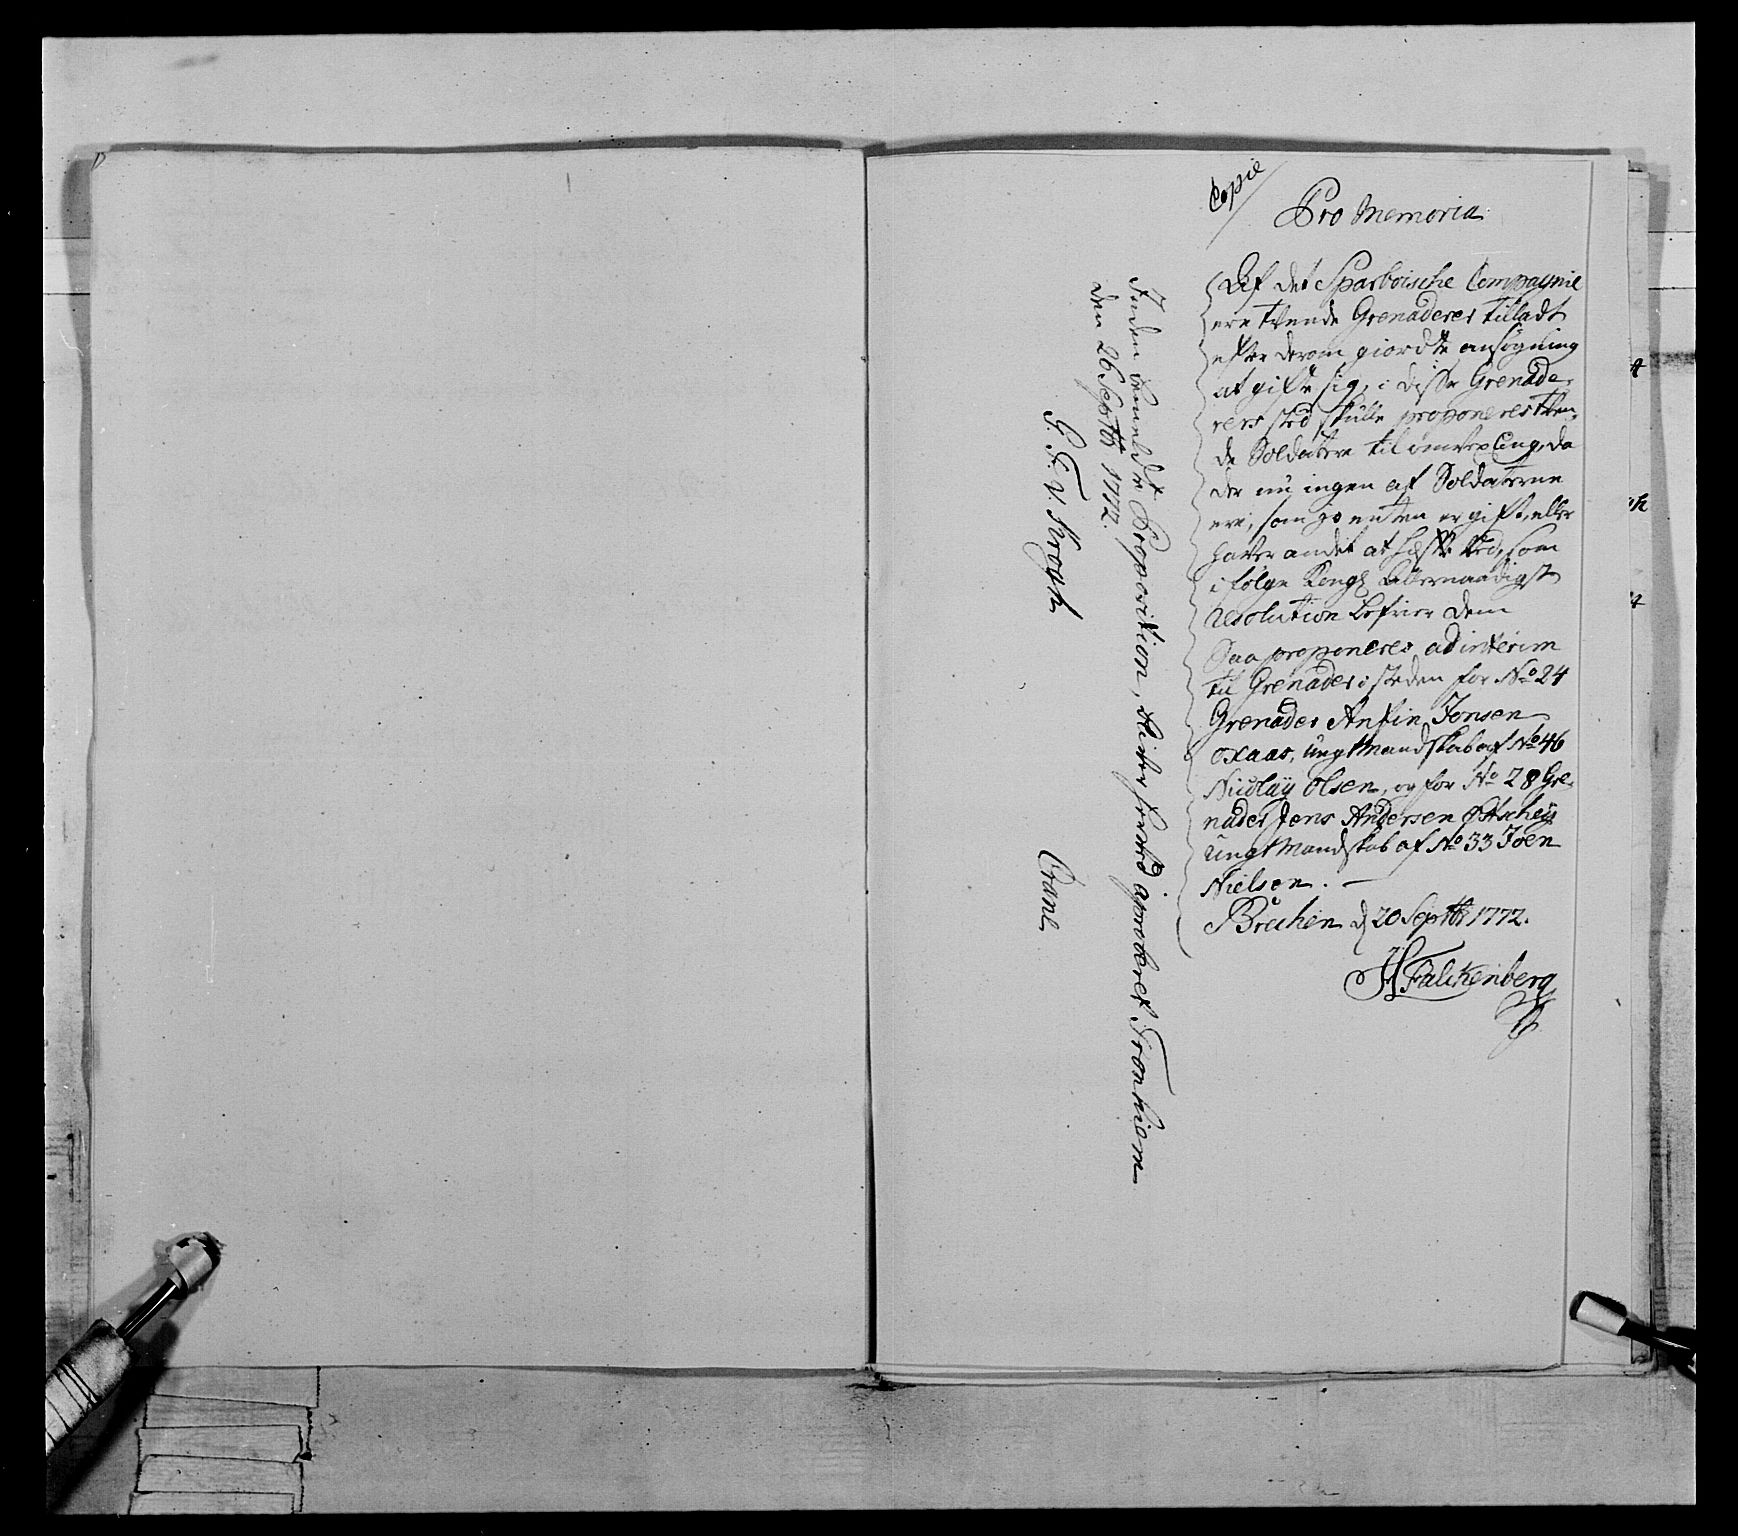 Copie
Pro Memoria
Af det Sparboische Compagnie
ere tvende Grenaderer tilladt
efter derom giordte ansøgning
at gifte sig, i disse Grenade-
rers sted skulle proponeres tven-
de Soldatere til omvexling, da
der nu ingen af Soldaterne
ere, som jo enten er gift, eller
haver andet at hefte ved, som
i følge Kongl Allernaadigst
Resolution befrier dem
Saa proponeres ad interim
til Grenader i steden for No 24
Grenader Anfin Jonsen
Oxaas, ungt Mandskab af No 46
Nicolay Olsen, og for No 28 Gre-
nader Jens Andersen
ungt Mandskab af No 33 Joen
Nielsen.
d 20 Septbr 1772.
H Falckenberg
Inden bemeldte Proposition, bliver herved aproberet Tronhiem
den 26 Septbr 1772.
G. F. V. Krogh